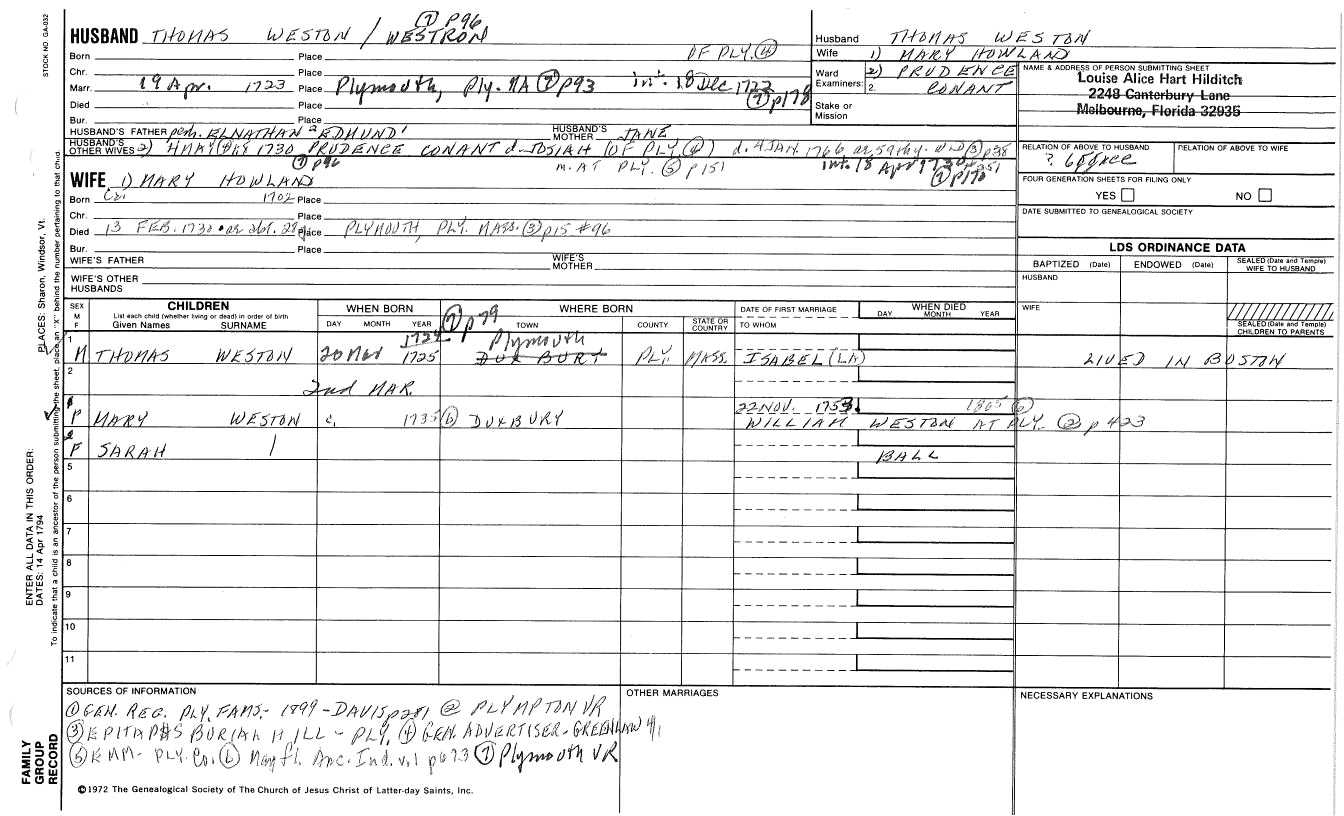 STOCK NO. GA-032
⑦ P96
HUSBAND THOMAS WESTON / WESTRON
Born Place OF PLY. ④
Chr. Place
Marr. 19 Apr. 1723 Place Plymouth, Ply. MA ⑦ p93 int. 18 Dec 1722 ⑦ p178
Died Place
Bur. Place
HUSBAND'S FATHER perh. ELNATHAN 2 EDMUND 1 HUSBAND'S MOTHER JANE
HUSBAND'S OTHER WIVES 2) 4 MAY 1730 PRUDENCE CONANT d. JOSIAH (OF PLY. ④)
⑦ p96 m. AT PLY. ⑤ p151 int. 18 Apr 1730 ⑦ p170
Husband THOMAS WESTON
Wife 1) MARY HOWLAND
Ward Examiners: 2) PRUDENCE
2. CONANT
Stake or Mission
NAME & ADDRESS OF PERSON SUBMITTING SHEET
Louise Alice Hart Hilditch
2248 Canterbury Lane
Melbourne, Florida 32935
RELATION OF ABOVE TO HUSBAND RELATION OF ABOVE TO WIFE
FOUR GENERATION SHEETS FOR FILING ONLY
YES NO
DATE SUBMITTED TO GENEALOGICAL SOCIETY
WIFE 1) MARY HOWLAND
Born Ca. 1702 Place
Chr. Place
Died 13 FEB. 1730 Place PLYMOUTH, PLY. MASS. ③ p15 #96
Bur. Place
WIFE'S FATHER WIFE'S MOTHER
WIFE'S OTHER HUSBANDS
LDS ORDINANCE DATA
BAPTIZED (Date) ENDOWED (Date) SEALED (Date and Temple) WIFE TO HUSBAND
HUSBAND
WIFE
SEALED (Date and Temple) CHILDREN TO PARENTS
SEX M F
CHILDREN
List each child (whether living or dead) in order of birth
Given Names SURNAME
WHEN BORN
DAY MONTH YEAR
⑦ p79
WHERE BORN
TOWN COUNTY STATE OR COUNTRY
DATE OF FIRST MARRIAGE
TO WHOM
WHEN DIED
DAY MONTH YEAR
1 1724 Plymouth
M THOMAS WESTON 20 Mar 1725 DUXBURY PLY. MASS. ISABEL (LA) LIVED IN BOSTON
2
2nd MAR.
22 NOV. 1753. 1805 ⑥
F MARY WESTON c. 1735 ⑥ DUXBURY WILLIAM WESTON AT PLY. ② p 423
F SARAH BALL
5
6
7
8
9
10
11
SOURCES OF INFORMATION
① GEN. REG. PLY. FAMS. - 1899 - DAVIS p281 ② PLYMPTON VR
③ EPITAPHS BURIAL HILL - PLY. ④ GEN. ADVERTISER - GREENLAW V1
⑤ EMM - PLY. Co. ⑥ Mayfl. Anc. Ind. v.1 p673 ⑦ Plymouth VR
OTHER MARRIAGES
NECESSARY EXPLANATIONS
©1972 The Genealogical Society of The Church of Jesus Christ of Latter-day Saints, Inc.
PLACES: Sharon, Windsor, Vt.
To indicate that a child is an ancestor of the person submitting the sheet, place an "X" behind the number pertaining to that child.
ENTER ALL DATA IN THIS ORDER:
DATES: 14 Apr 1794
FAMILY GROUP RECORD